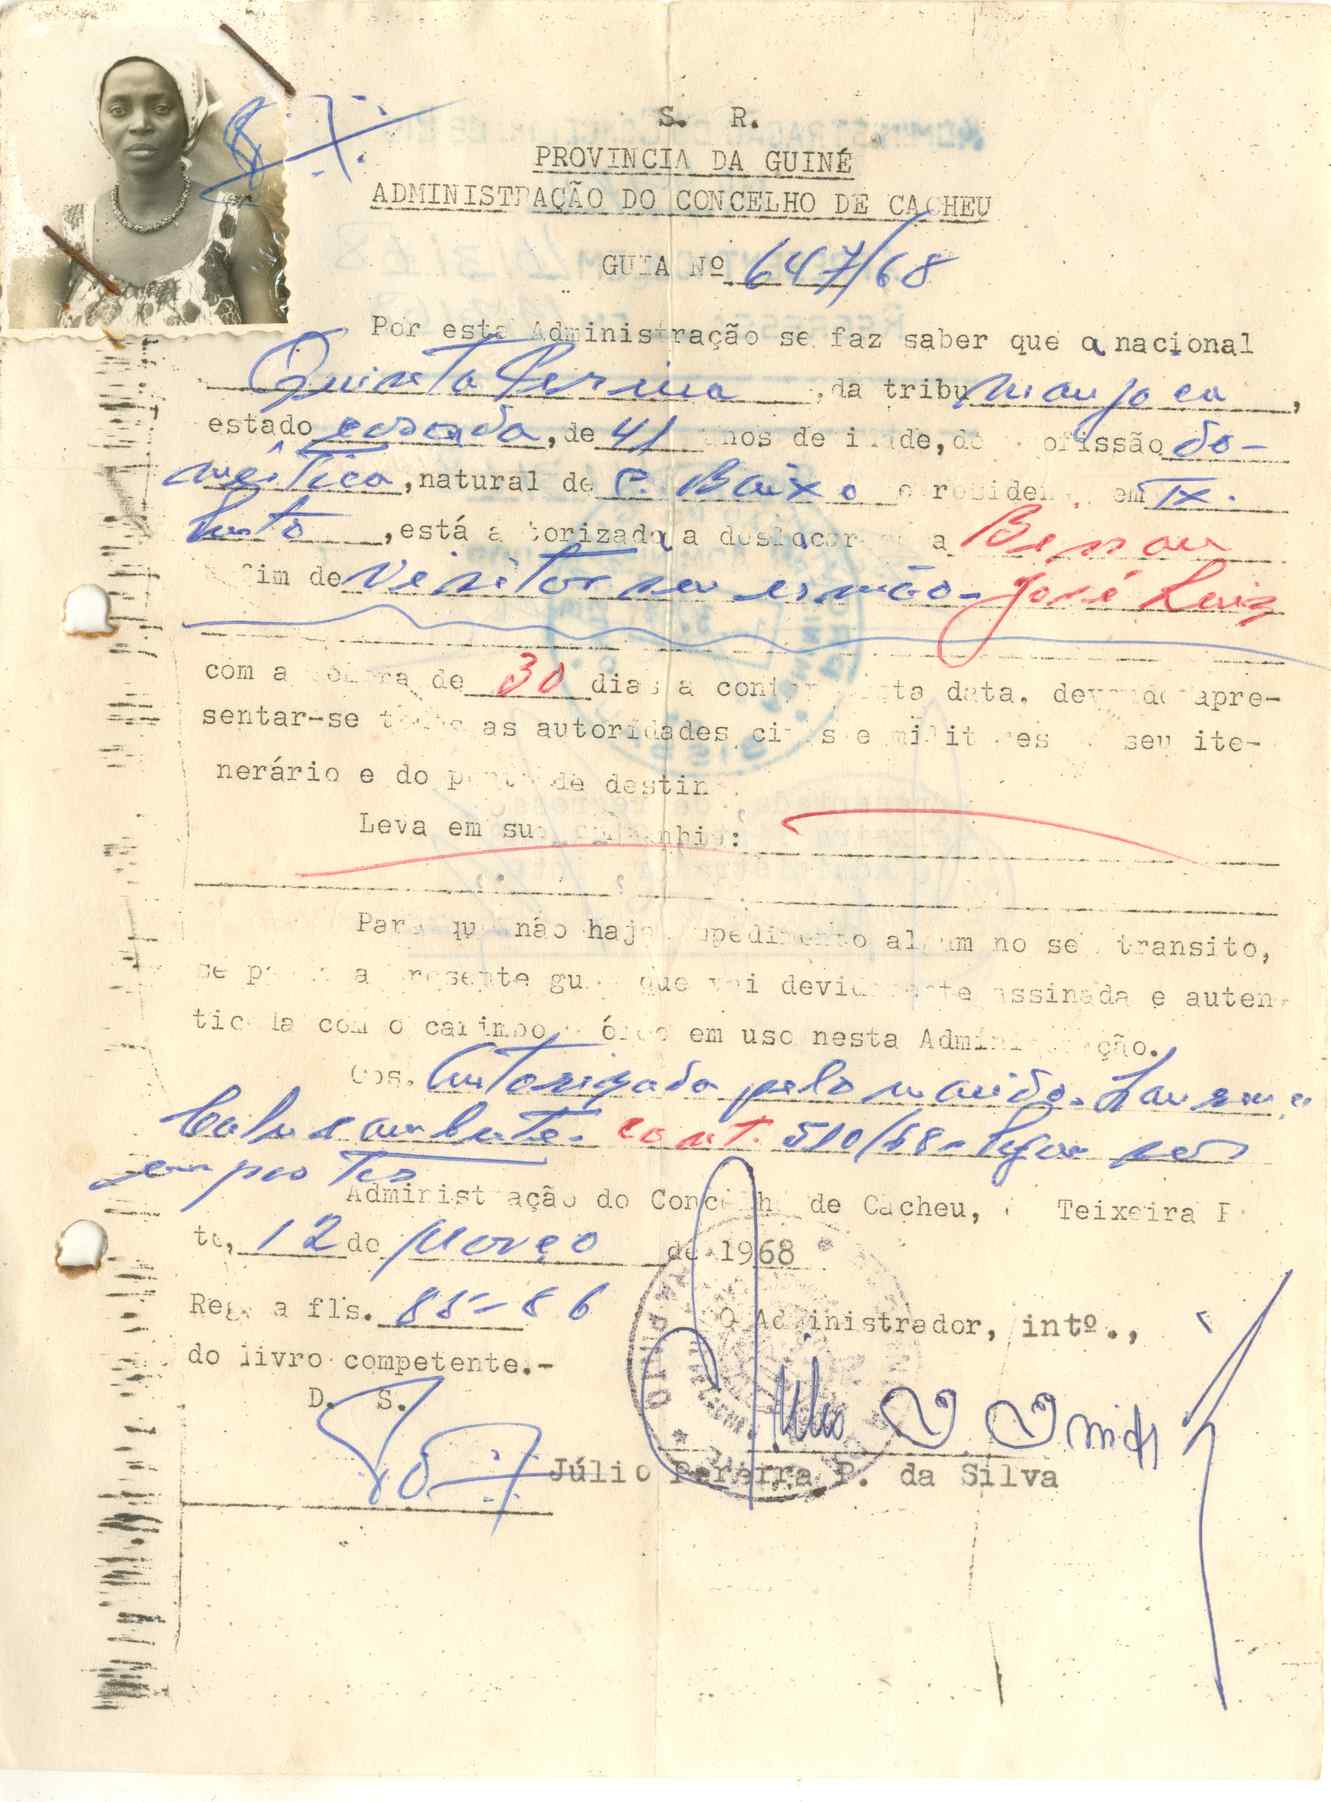 S. R.
PROVINCIA DA GUINÉ
ADMINISTRAÇÃO DO CONCELHO DE CACHEU
GUIA Nº 647/68
Por esta Administração se faz saber que a nacional
Quinta , da tribu manjaca ,
estado casada, de 41 anos de idade, de profissão do-
méstica, natural de C. Baixo e residente em Tx.
Pinto , está autorizada a deslocar-se a Bissau
a fim de visitar seu irmão - José Luiz
com a demora de 30 dias a contar desta data, devendo apre-
sentar-se todas as autoridades civis e militares do seu ite-
nerário e do ponto de destino.
Leva em sua companhia:
Para que não haja impedimento algum no seu transito,
se passa a presente guia que vai devidamente assinada e auten-
ticada com o carimbo a óleo em uso nesta Administração.
Obs. Autorizada pelo marido.
cont. 510/68
Administração do Concelho de Cacheu, Teixeira Pin
to, 12 de Março de 1968
Regº a fls. 85-86 O Administrador, intº.,
do livro competente.-
D. S.
Júlio Pereira P. da Silva